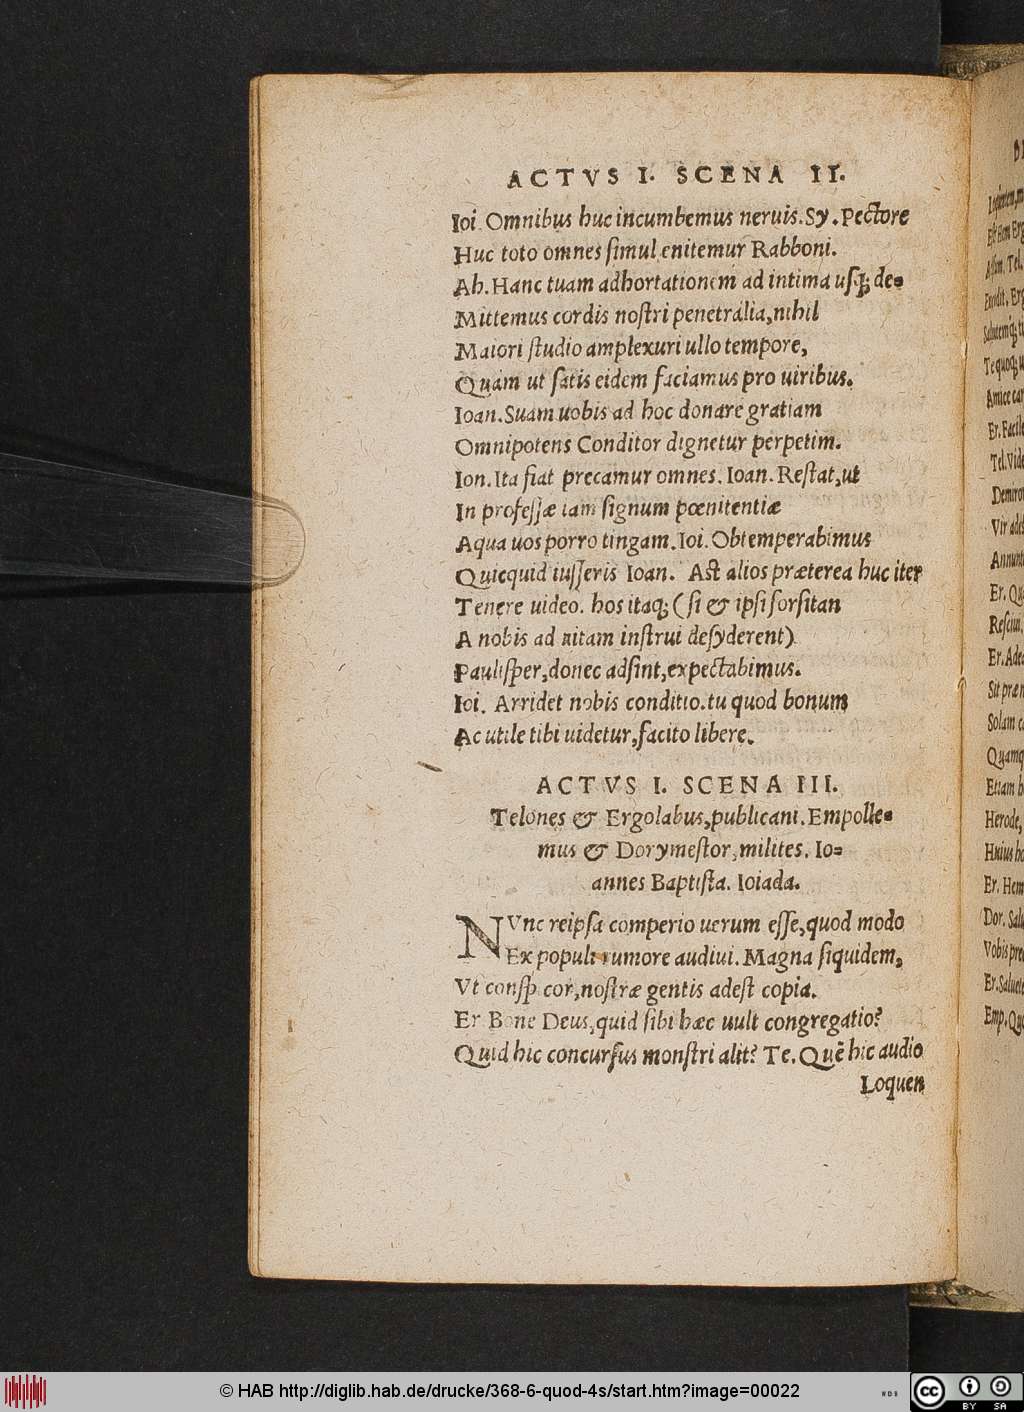 ACTVS I. SCENA II.
Ioi. Omnibus huc incumbemus neruis. Sy. Pectore
Huc toto omnes ſimul enitemur Rabboni.
Ab. Hanc tuam adhortationem ad intima uſq; de-
Mittemus cordis noſtri penetralia, nihil
Maiori ſtudio amplexuri ullo tempore,
Quàm ut ſatis eidem faciamus pro uiribus.
Ioan. Suam uobis ad hoc donare gratiam
Omnipotens Conditor dignetur perpetim.
Ion. Ita fiat precamur omnes. Ioan. Reſtat, ut
In profeſſæ iam ſignum pœnitentiæ
Aqua uos porro tingam. Ioi. Obtemperabimus
Quicquid iuſſeris Ioan. Aſt alios præterea huc iter
Tenere uideo. hos itaq; (ſi & ipſi forſitan
A nobis ad uitam inſtrui deſyderent)
Pauliſper, donec adſint, expectabimus.
Ioi. Arridet nobis conditio. tu quod bonum
Ac utile tibi uidetur, facito libere.
ACTVS I. SCENA III.
Telones & Ergolabus, publicani. Empolle-
mus & Dorymeſtor, milites. Io-
annes Baptiſta. Ioiada.
NVnc reipſa comperio uerum eſſe, quod modo
Ex populi rumore audiui. Magna ſiquidem,
Vt conſpicor, noſtræ gentis adeſt copia.
Er Bone Deus, quid ſibi hæc uult congregatio?
Quid hic concurſus monſtri alit? Te. Quē hic audio
Loquen
© HAB http://diglib.hab.de/drucke/368-6-quod-4s/start.htm?image=00022
cc BY SA